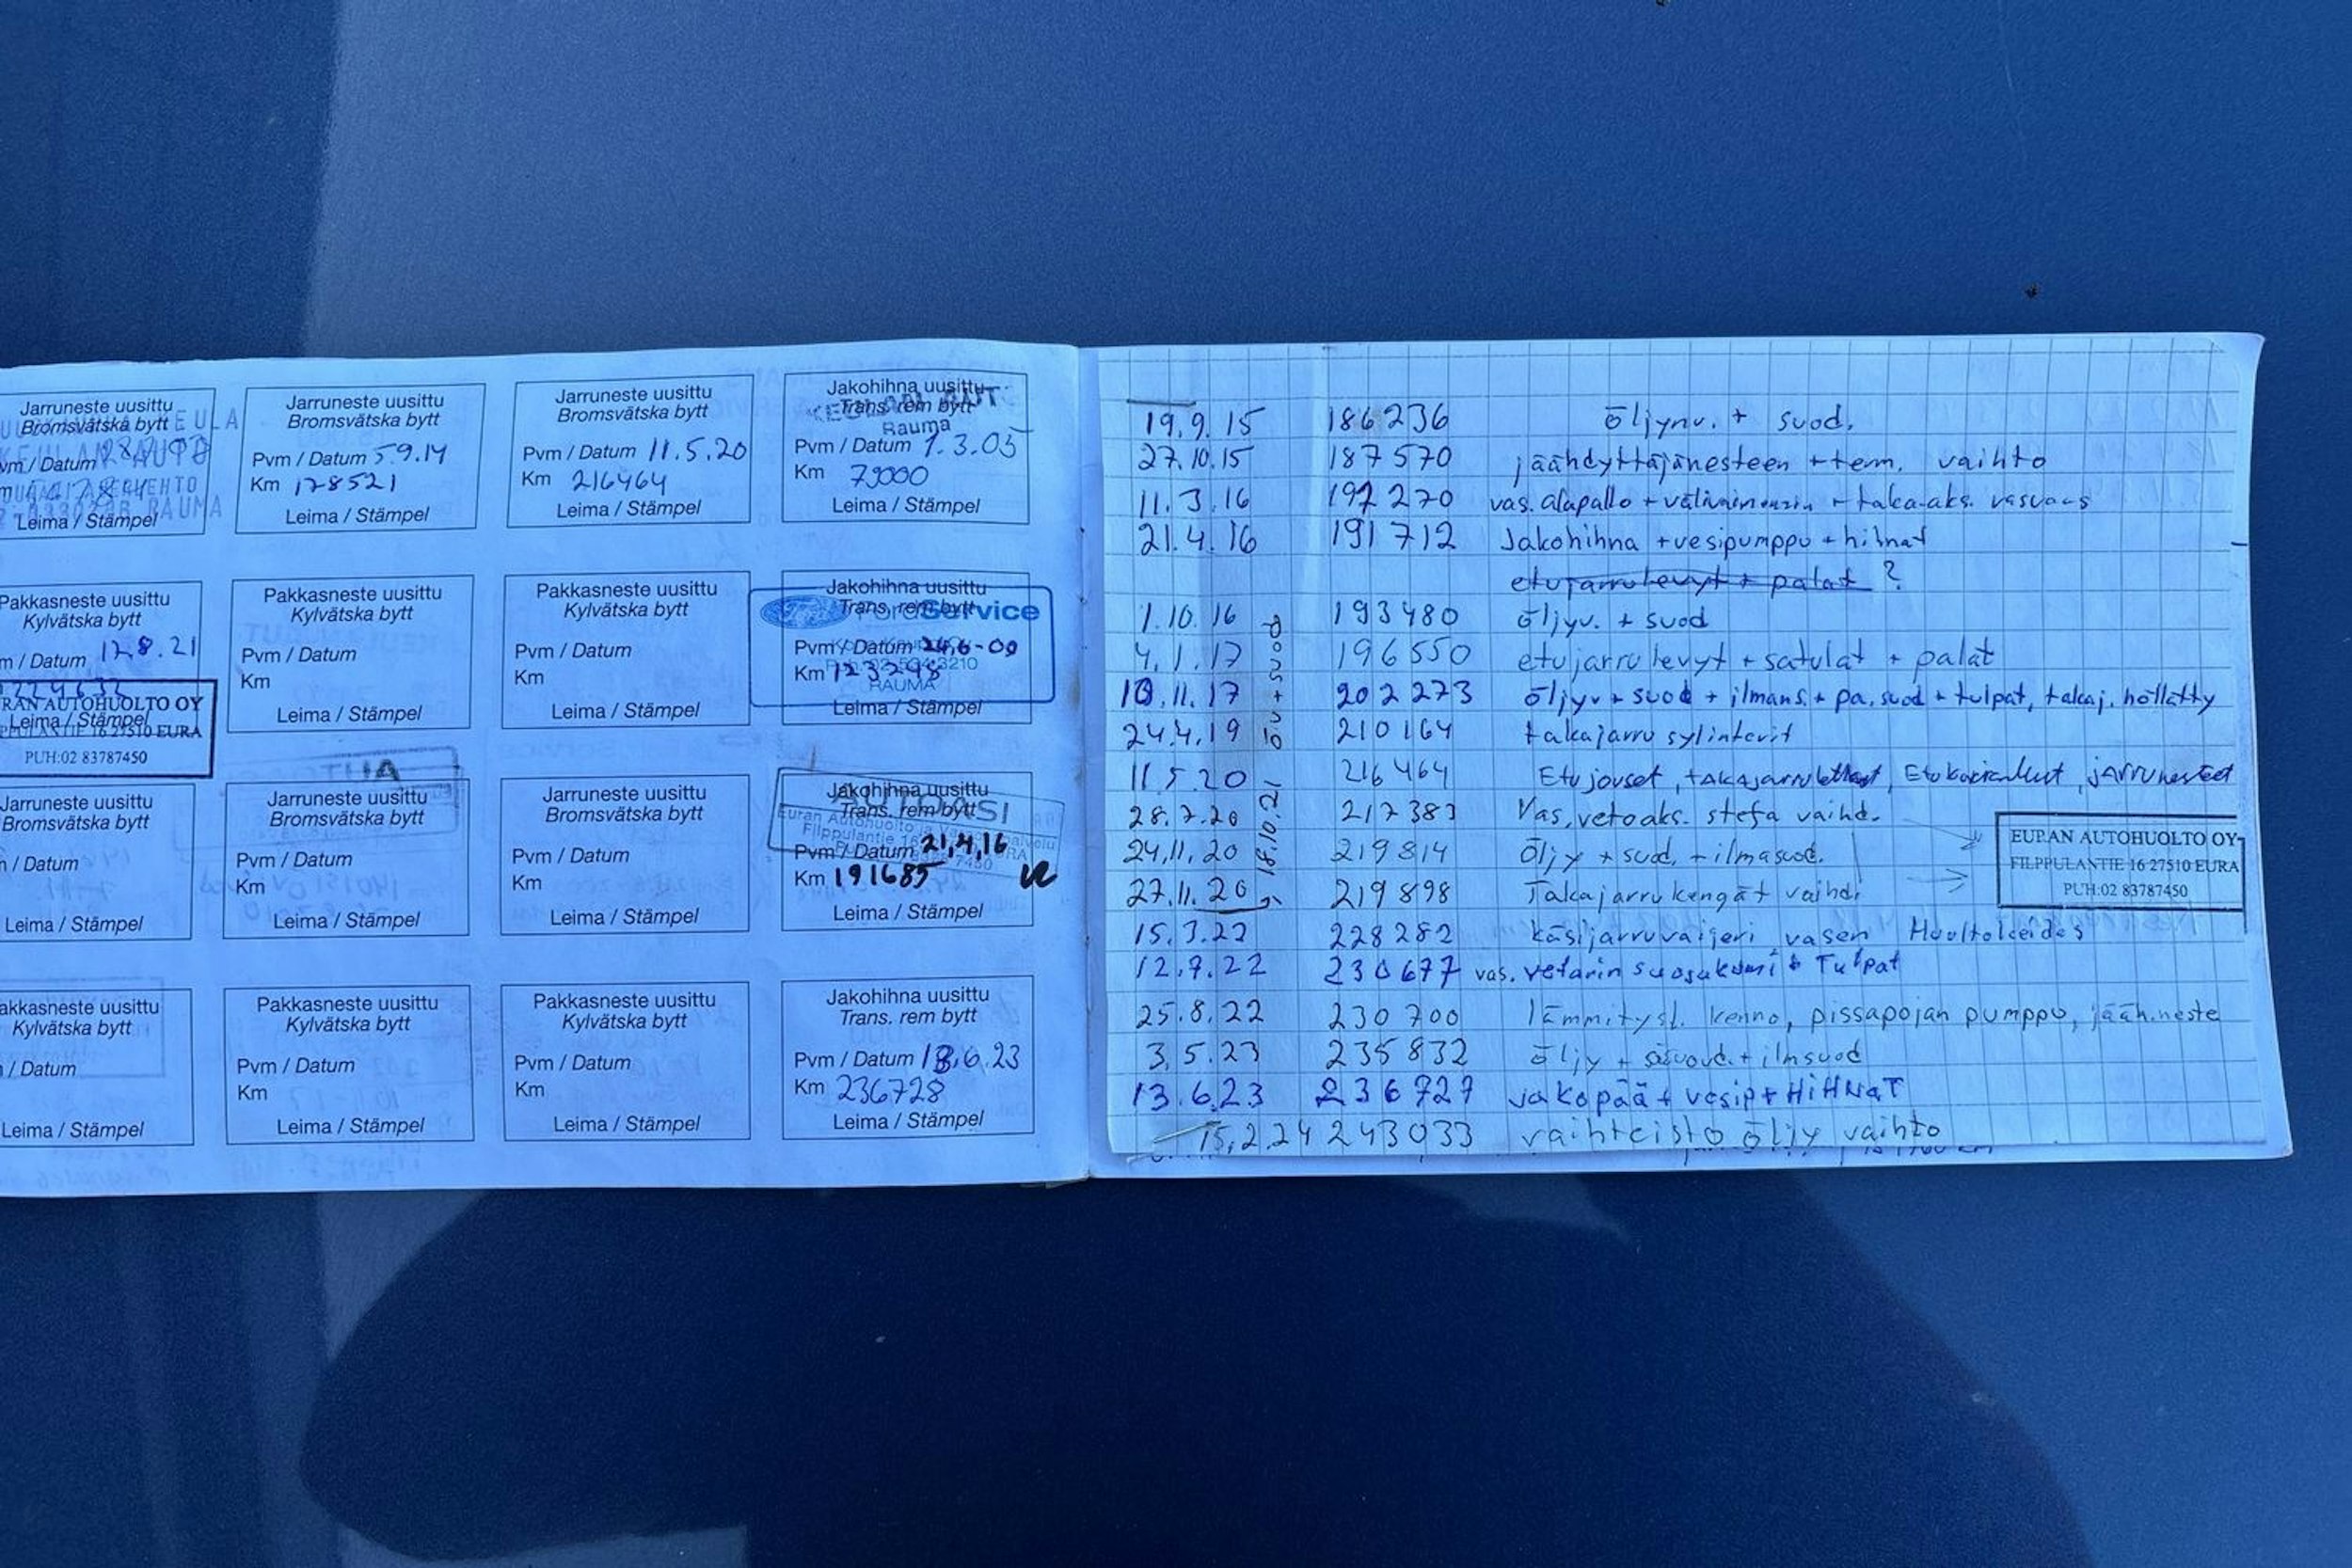 Jarruneste uusittu
Bromsvätska bytt
Datum
Leima / Stämpel
Jarruneste uusittu
Bromsvätska bytt
Pvm / Datum 5.9.14
Km 178521
Leima / Stämpel
Jarruneste uusittu
Bromsvätska bytt
Pvm / Datum 11.5.20
Km 216464
Leima / Stämpel
Jakohihna uusittu
Trans. rem bytt
Rauma
Pvm / Datum 1.3.05
Km 79000
Leima / Stämpel
Pakkasneste uusittu
Kylvätska bytt
m / Datum 17.8.21
RAN AUTOHUOLTO OY
Leima / Stämpel
PUH:02 83787450
Pakkasneste uusittu
Kylvätska bytt
Pvm / Datum
Km
Leima / Stämpel
Pakkasneste uusittu
Kylvätska bytt
Pvm / Datum
Km
Leima / Stämpel
Jakohihna uusittu
Trans. rem bytt
Ford Service
Pvm / Datum 24.6-09
Km 123248
RAUMA
Leima / Stämpel
Jarruneste uusittu
Bromsvätska bytt
/ Datum
Leima / Stämpel
Jarruneste uusittu
Bromsvätska bytt
Pvm / Datum
Km
Leima / Stämpel
Jarruneste uusittu
Bromsvätska bytt
Pvm / Datum
Km
Leima / Stämpel
Jakohihna uusittu
Trans. rem bytt
AUTOASI
Pvm / Datum 21,4,16
Km 191685
Leima / Stämpel
akkasneste uusittu
Kylvätska bytt
/ Datum
Leima / Stämpel
Pakkasneste uusittu
Kylvätska bytt
Pvm / Datum
Km
Leima / Stämpel
Pakkasneste uusittu
Kylvätska bytt
Pvm / Datum
Km
Leima / Stämpel
Jakohihna uusittu
Trans. rem bytt
Pvm / Datum 13.6.23
Km 236728
Leima / Stämpel
19.9.15 186236 öljynv. + suod.
27.10.15 187570 jäähdyttäjänesteen + term. vaihto
11.3.16 191270 vas. alapallo + + taka-aks.
21.4.16 191712 Jakohihna + vesipumppu + hihnat
etujarrulevyt + palat ?
1.10.16 193480 öljyv. + suod
4.1.17 196550 etujarrulevyt + satulat + palat
10.11.17 202273 öljyv + suod + ilmans. + pa.suod + tulpat, takaj. höllätty
24.4.19 210164 takajarrusylinterit
11.5.20 216464 Etujouset, jarrunesteet
28.7.20 217383 Vas. vetoaks. stefa vaihd.
24.11.20 219814 öljy + suod. + ilmasuod.
27.11.20 219898 Takajarrukengät vaihd.
18.10.21 öv + suod
EURAN AUTOHUOLTO OY
FILPPULANTIE 16 27510 EURA
PUH:02 83787450
15.3.22 228282 käsijarruvaijeri vasen
12.7.22 230677 vas. vetarin suojakumi + Tulpat
25.8.22 230700 lämmitysl. kenno, pissapojan pumppu, jääh.neste
3.5.23 235832 öljy + + ilmsuod
13.6.23 236727 jakopää + vesip + HiHNaT
15.2.24 243033 vaihteisto öljy vaihto